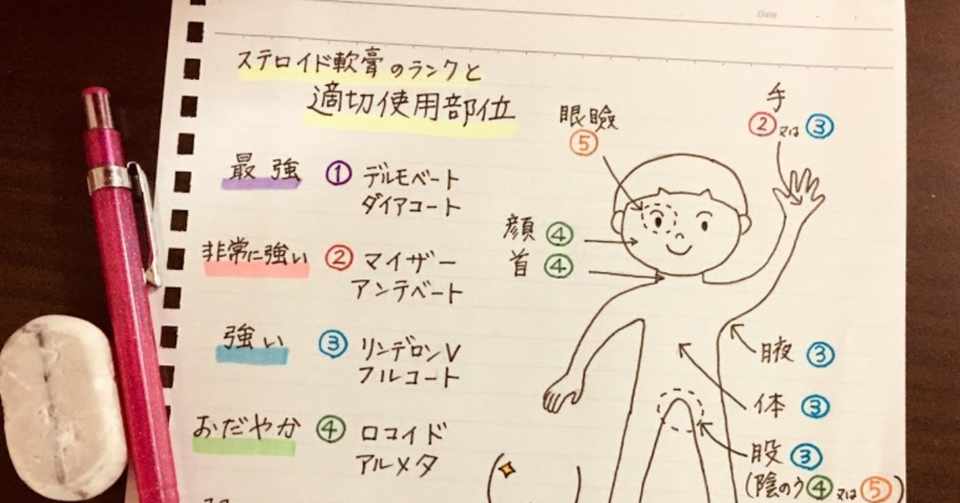 Date
ステロイド軟膏のランクと
適切使用部位
最強 ① デルモベート
ダイアコート
非常に強い ② マイザー
アンテベート
強い ③ リンデロンV
フルコート
おだやか ④ ロコイド
アルメタ
眼瞼
⑤
手
② 又は ③
顔 ④
首 ④
腋 ③
体 ③
股 ③
(陰のう ④ 又は ⑤)